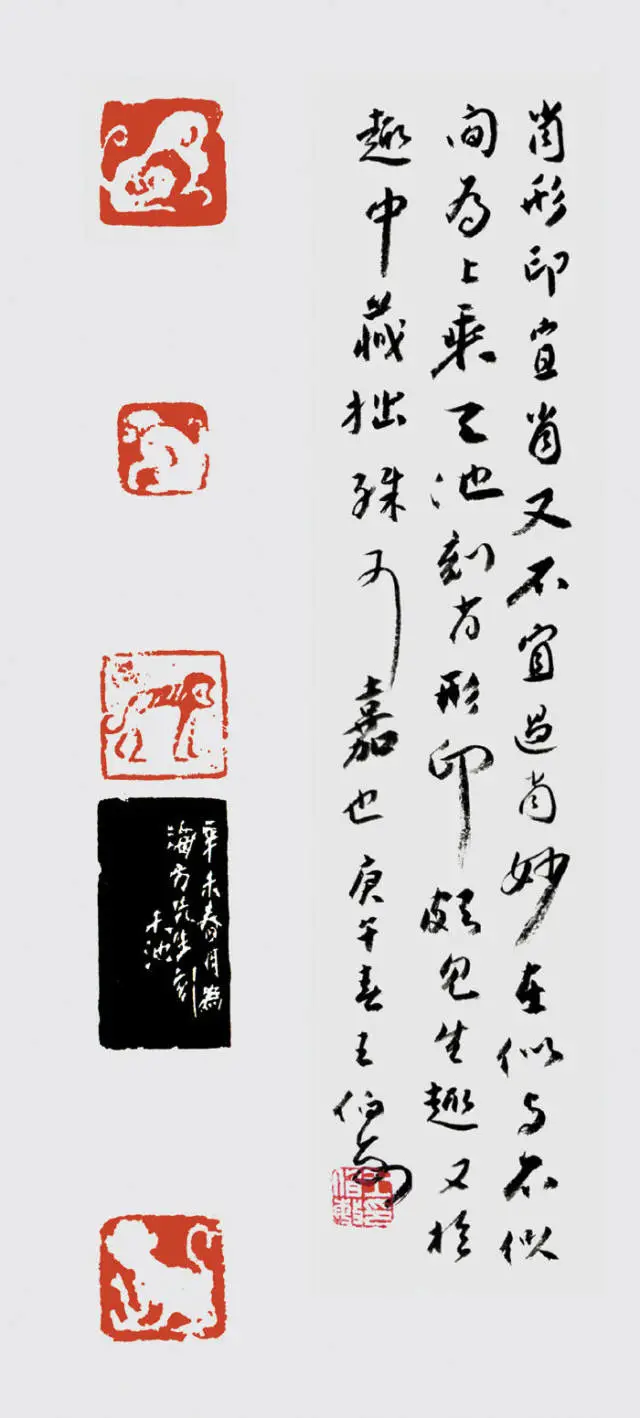 肖形印宜肖又不宜過肖妙在似与不似
间为上乘天池刻肖形印頗見生趣又於
趣中藏拙殊可嘉也庚午春王伯敏
王印
伯敏
辛未春月為
海方先生刻
天池